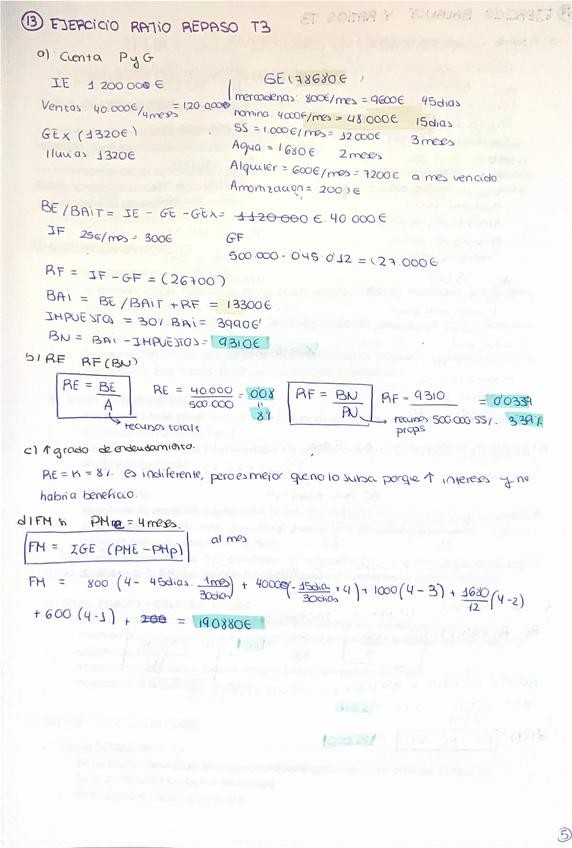 13 EJERCICIO RATIO REPASO T3
a) Cuenta PyG
IE 1 200 000 €
Ventas: 40.000€/4meses = 120.000€
GEX (1320€)
lluvias 1320€
GE (78680€)
mercaderías: 800€/mes = 9600€ 45dias
nomina 4000€/mes = 48.000€ 15dias
SS = 1.000€/mes = 12000€ 3meses
Agua = 1680€ 2meses
Alquiler = 600€/mes = 7200€ a mes vencido
Amortización = 200
BE/BAIT = IE - GE - GEX = 1120000 €. 40 000€
IF 25€/mes = 300€
GF
500.000 · 0'45 · 0'12 = (27.000€
RF = IF - GF = (26700)
BAi = BE/BAIT + RF = 13300€
IMPUESTOS = 30% BAi = 3990€
BN = BAi - IMPUESTOS = 9310€
b) RE RF (BN)
RE = BE/A
recursos totales
RE = 40000/500 000 = 0'08
8%
RF = BN/PN
RF = 9310 = 0'0339
recursos props 500.000 55% 3'39%
c) ↑ grado de endeudamiento.
RE = K = 8% es indiferente, pero es mejor que no lo suba porque ↑ intereses y no
habria beneficio.
d) FM PMe = 4meses.
FM = ΣGE · (PME - PMp) al mes
FM = 800 (4 - 45dias · 1mes/30dias) + 4000(-15dia/30dias + 4) + 1000(4-3) + 1680/12 (4-2)
+ 600 (4-1) + 200 = 190880€
5